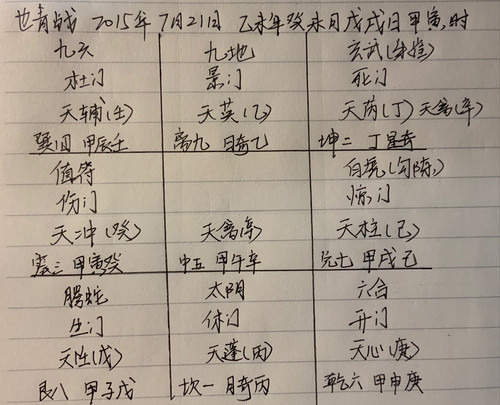 也青战 2015年 7月21日 乙未年癸未月戊戌日甲寅时
九天 九地 玄武(朱雀)
杜门 景门 死门
天辅(壬) 天英(乙) 天芮(丁) 天禽(辛)
巽四 甲辰壬 离九 日奇乙 坤二 丁星奇
值符 白虎(勾陈)
伤门 惊门
天冲(癸) 天禽辛 天柱(己)
震三 甲寅癸 中五 甲午辛 兑七 甲戌己
腾蛇 太阴 六合
生门 休门 开门
天任(戊) 天蓬(丙) 天心(庚)
艮八 甲子戊 坎一 月奇丙 乾六 甲申庚